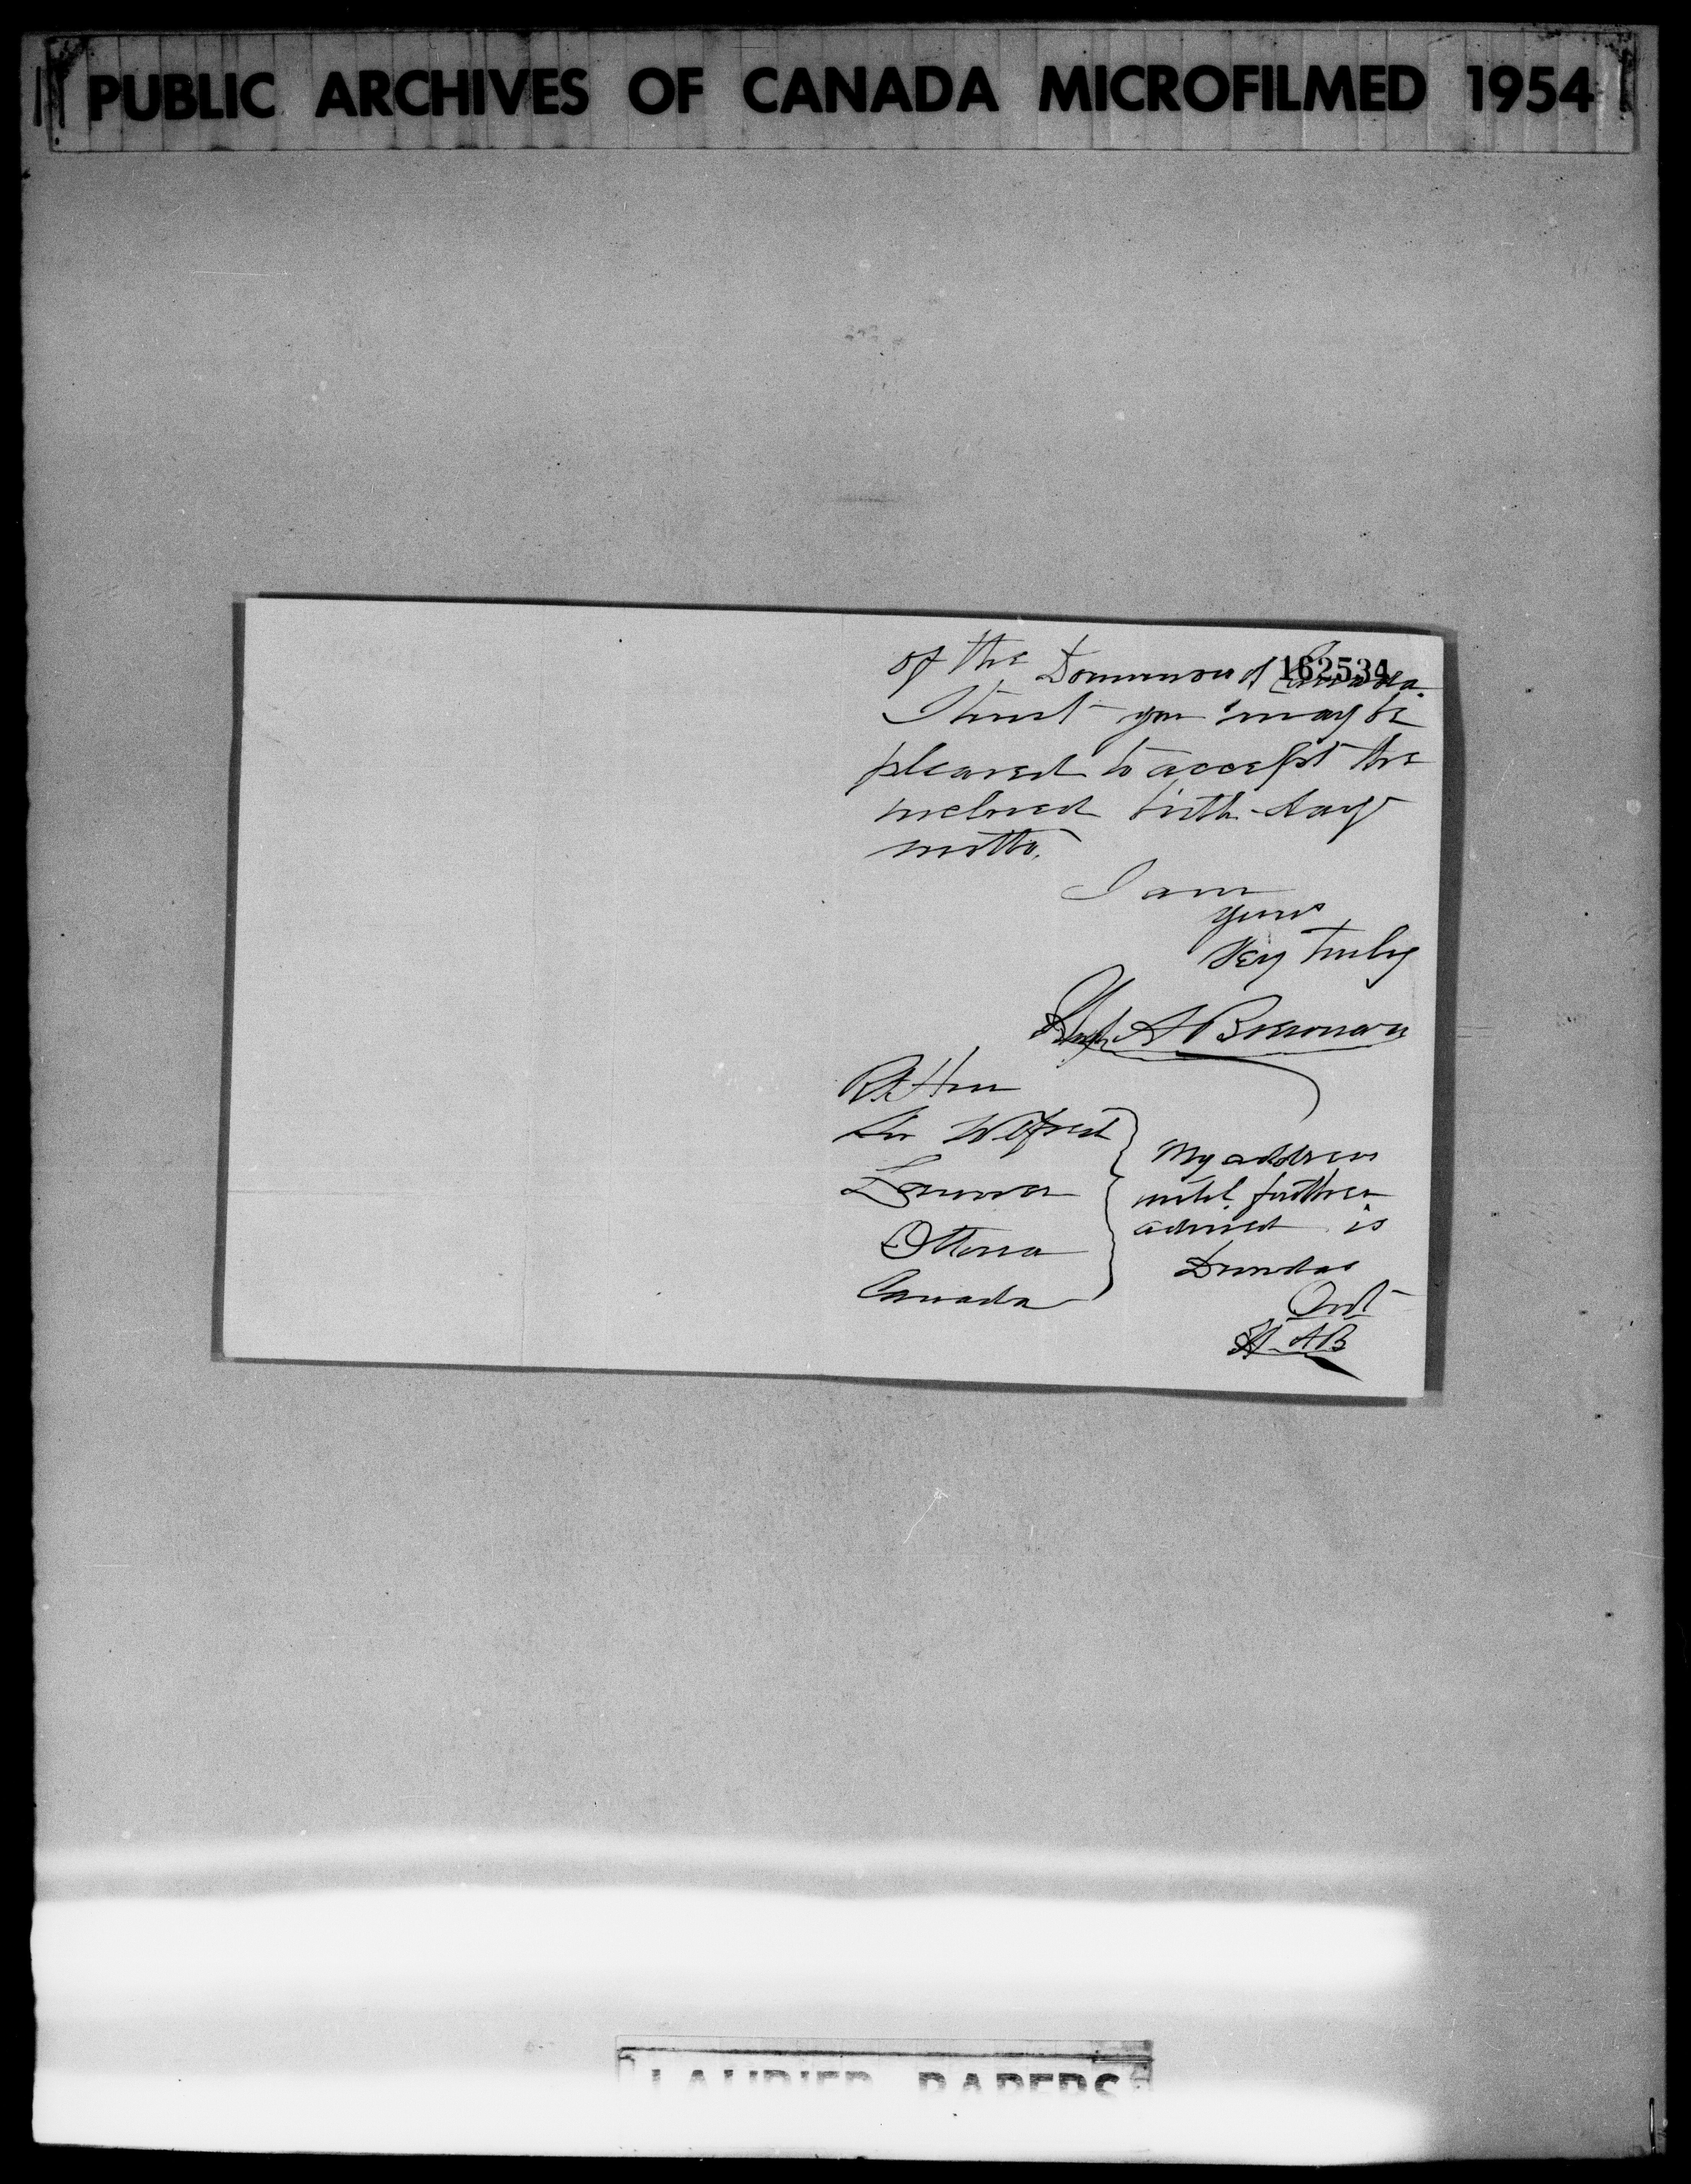 PUBLIC ARCHIVES OF CANADA MICROFILMED 1954
162534
of the Dominion of Canada.
I trust you may be
pleased to accept the
inclosed birth-day
motto.
I am
yours
Very truly
Hugh A B
Rt Hon
Sir Wilfred
Laurier
Ottawa
Canada
My address
until further
advised is
Dundas
Ont
H. A B
LAURIER PAPERS